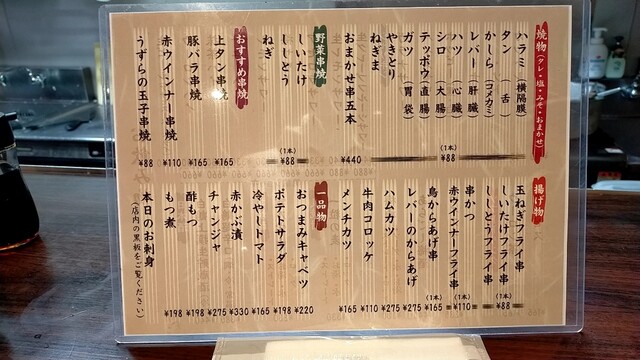 焼物(タレ・塩・みそ・おまかせ)
ハラミ(横隔膜)
タン(舌)
かしら(コメカミ)
レバー(肝臓)
ハツ(心臓)
シロ(大腸)
テッポウ(直腸)
ガツ(胃袋)
やきとり
ねぎま
(1本)
¥88
おまかせ串五本 ¥440
野菜串焼
しいたけ
ししとう
ねぎ
(1本)
¥88
おすすめ串焼
上タン串焼 ¥165
豚バラ串焼 ¥165
赤ウインナー串焼 ¥110
うずらの玉子串焼 ¥88
揚げ物
玉ねぎフライ串
しいたけフライ串
ししとうフライ串
(1本)
¥88
赤ウインナーフライ串 (1本) ¥110
鳥からあげ串 (1本) ¥165
レバーのからあげ ¥275
ハムカツ ¥275
牛肉コロッケ ¥110
メンチカツ ¥165
一品物
おつまみキャベツ ¥220
ポテトサラダ ¥198
冷やしトマト ¥165
赤かぶ漬 ¥330
チャンジャ ¥275
串かつ ¥198
もつ煮 ¥198
本日のお刺身
(店内の黒板をご覧ください)